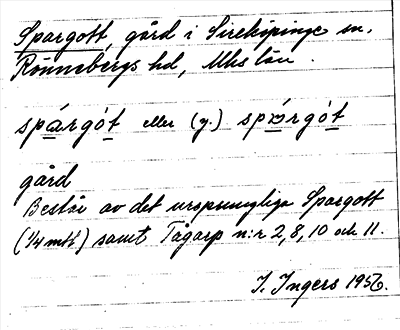 Spargott, gård i Sireköpinge sn,
Rönnebergs hd, Mhs län.
spárgót eller (y.) spárgót
gård
Består av det ursprungliga Spargott
(1/4 mtl) samt Tågarp n:r 2, 8, 10 och 11.
I. Ingers 1956.